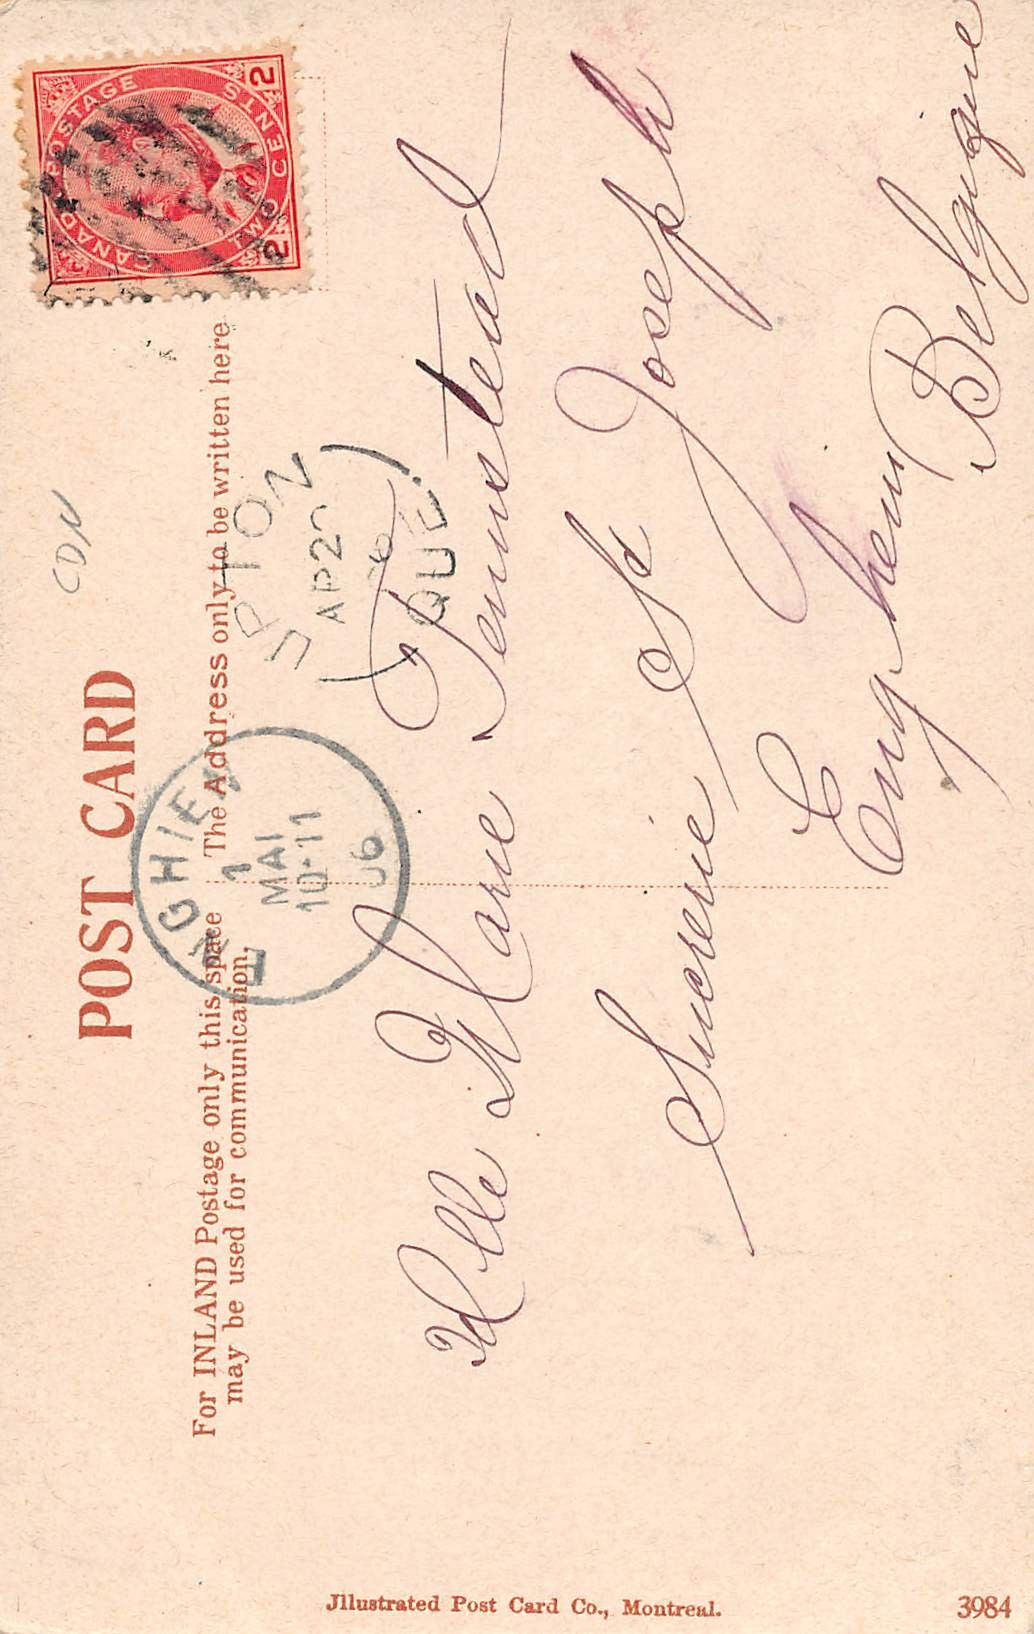 POST CARD
CDN
CANADA POSTAGE
TWO CENTS
2 2
For INLAND Postage only this space
may be used for communication.
The Address only to be written here
UPTON
AP 2
06
QUE.
ENGHIEN
1
MAI
10-11
06
Melle Marie Tennstead
Sucrerie St Joseph
Enghein
Belgique
Jllustrated Post Card Co., Montreal.
3984